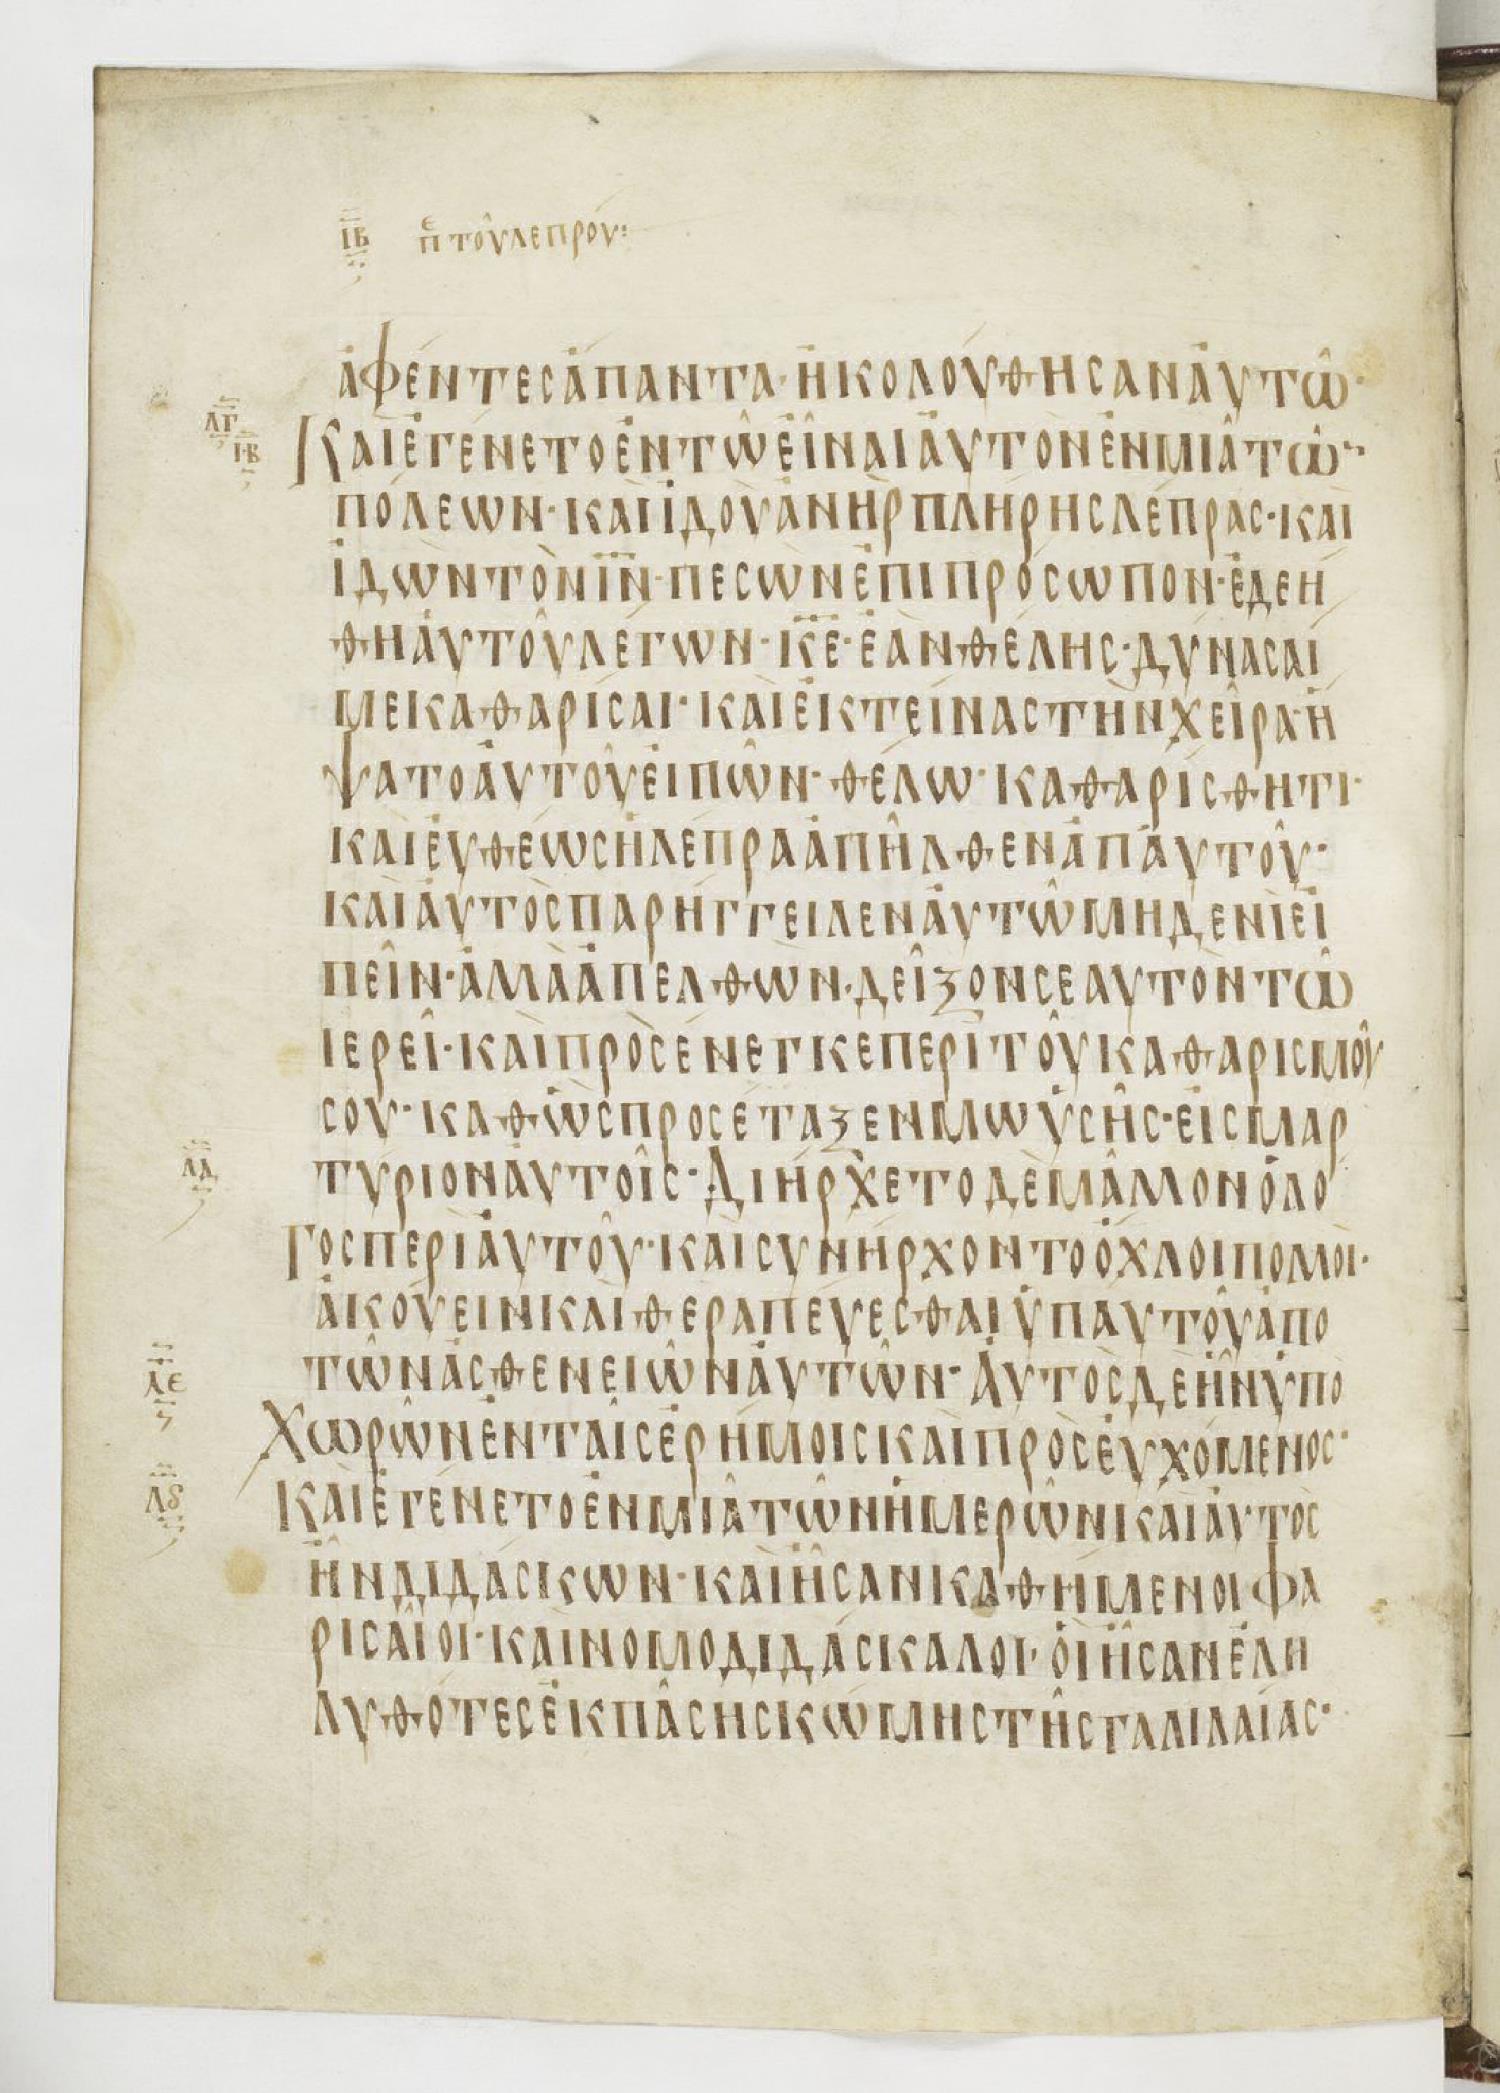 ΙΒ ΠΕ ΤΟΥ ΛΕΠΡΟΥ:
ἀφέντες ἅπαντα· ἠκολούθησαν αὐτῶ·
ΛΓ ΙΒ
Καὶ ἐγένετο ἐν τῶ εἶναι αὐτὸν ἐν μιᾶ τῶ̅
πόλεων· καὶ ἰδοὺ ἀνὴρ πλήρης λέπρας· καὶ
ἰδὼν τὸν ι̅ν̅· πεσὼν ἐπὶ πρόσωπον· ἐδεή
θη αὐτοῦ λέγων· κ̅ε̅· ἐὰν θέλης· δύνασαί
με καθαρίσαι· καὶ ἐκτείνας τὴν χεῖρα· ἥ
ψατο αὐτοῦ εἰπῶν· θέλω· καθαρίσθητι·
καὶ εὐθέως ἡ λέπρα ἀπῆλθεν ἀπ αὐτοῦ·
καὶ αὐτὸς παρήγγειλεν αὐτῶ μηδενὶ εἰ
πεῖν· ἀλλὰ ἀπελθὼν· δεῖξον σεαυτὸν τῶ
ἱερεῖ· καὶ προσένεγκε περὶ τοῦ καθαρισμοῦ
σου· καθὼς προσέταξεν μωϋσῆς· εἰς μαρ
τύριον αὐτοῖς· Διήρχετο δὲ μᾶλλον ὁ λό
ΛΔ
Γος περὶ αὐτοῦ· καὶ συνήρχοντο ὄχλοι πολλοὶ·
ἀκούειν καὶ θεραπεύεσθαι ὑπ αυτοῦ ἀπὸ
τῶν ἀσθενειῶν αὐτῶν· Αὐτὸς δὲ ἦν ὑπο
ΛΕ
Χωρῶν ἐν ταῖς ἐρήμοις καὶ προσευχόμενος·
ΛϚ
Καὶ ἐγένετο ἐν μιᾶ τῶν ἡμερῶν καὶ αὐτὸς
ἦν διδάσκων· καὶ ἦσαν καθήμενοι φα
ρισαῖοι· καὶ νομοδιδάσκαλοι· οἳ ἦσαν ἐλη
λυθότες ἐκ πάσης κώμης τῆς γαλιλαίας·